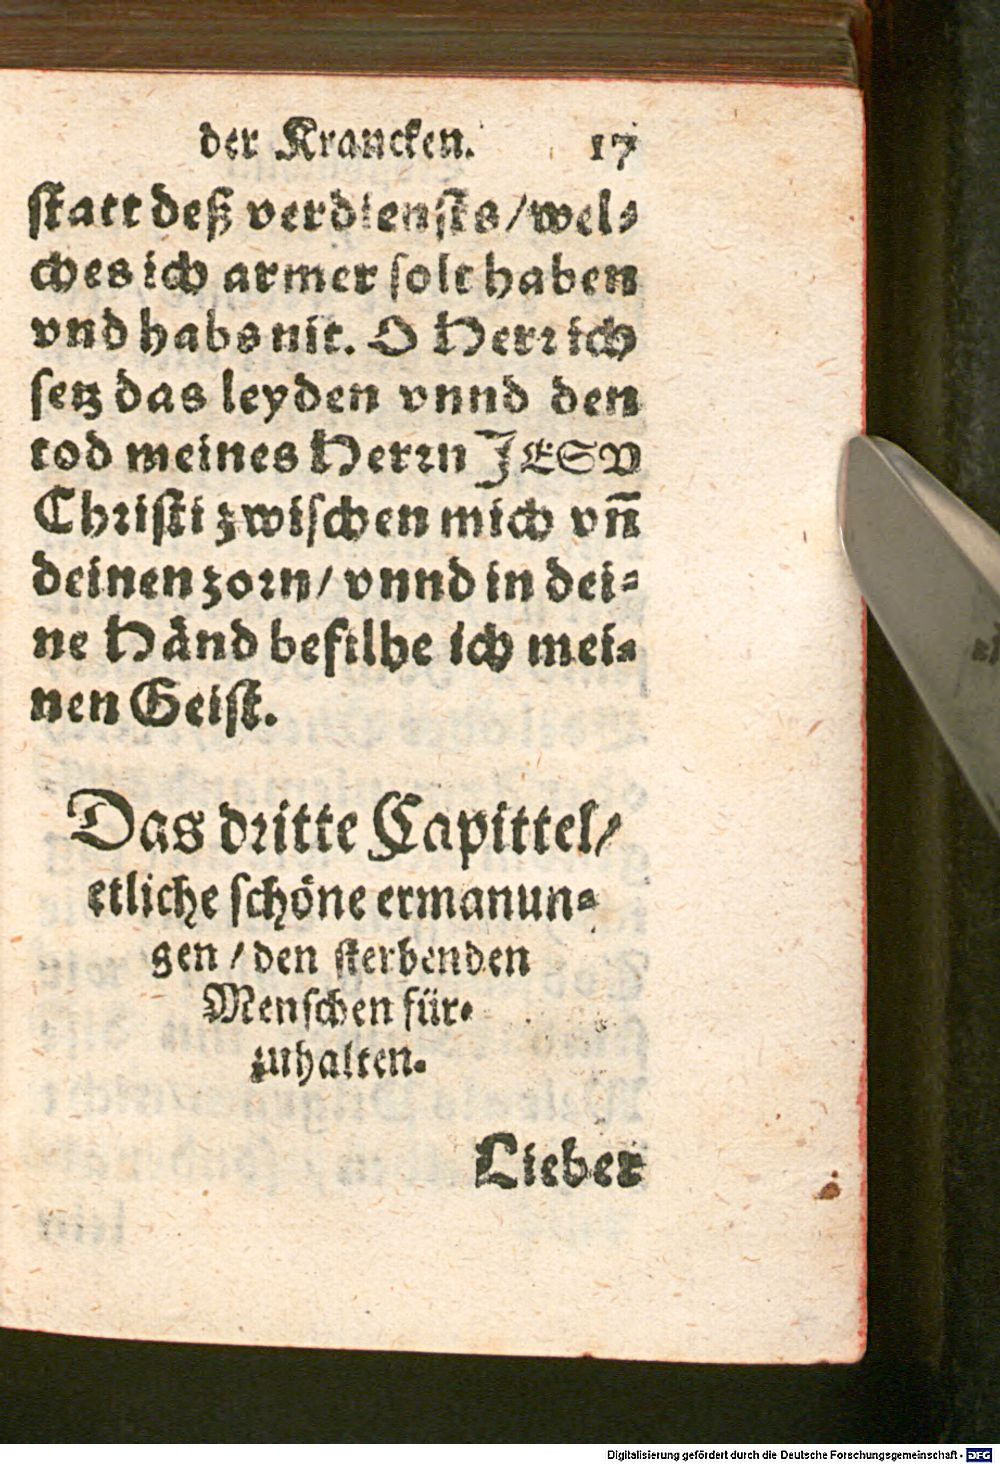 der Krancken. 17
statt deß verdiensts/wel⸗
ches ich armer solt haben
vnd habs nit. O Herr ich
setz das leyden vnnd den
tod meines Herrn JESV
Christi zwischen mich vñ
deinen zorn/ vnnd in dei⸗
ne Händ befilhe ich mei⸗
nen Geist.
Das dritte Capittel/
etliche schöne ermanun⸗
gen / den sterbenden
Menschen für⸗
zuhalten.
Lieber
Digitalisierung gefördert durch die Deutsche Forschungsgemeinschaft - DFG